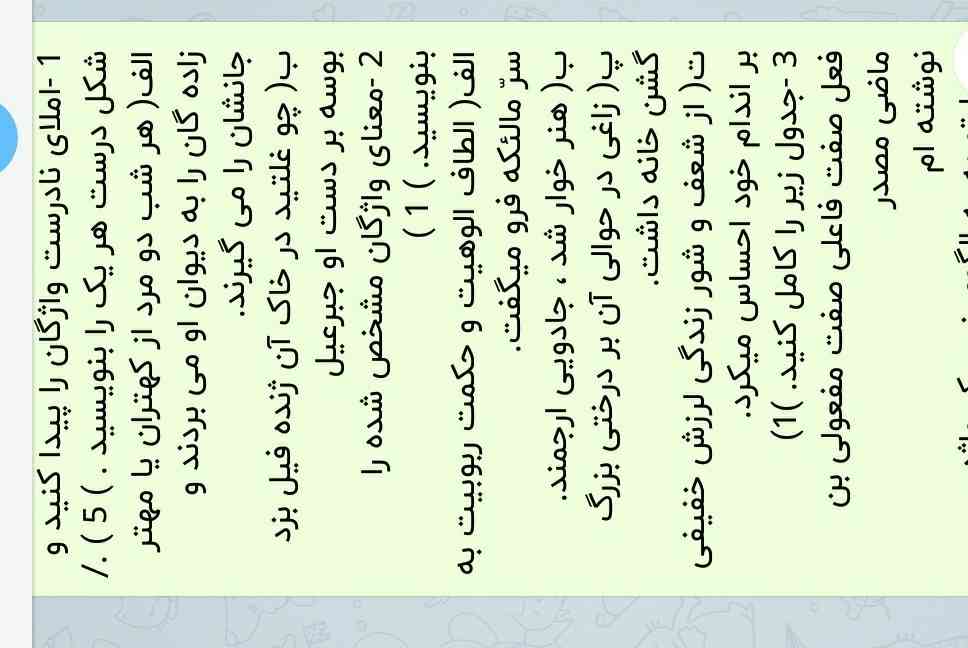 1 -املای نادرست واژگان را پیدا کنید و
شکل درست هر یک را بنویسید . ) 5 ( ./
الف( هر شب دو مرد از کهتران یا مهتر
زاده گان را به دیوان او می بردند و
جانشان را می گیرند.
ب( چو غلتید در خاک آن ژنده فیل بزد
بوسه بر دست او جبرعیل
2 -معنای واژگان مشخص شده را
بنویسید. ) 1 (
الف( الطاف الوهیت و حکمت ربوبیت به
سرّ مالئکه فرو میگفت.
ب( هنر خوار شد ، جادویی ارجمند.
پ( زاغی در حوالی آن بر درختی بزرگ
گشن خانه داشت.
ت( از شعف و شور زندگی لرزش خفیفی
بر اندام خود احساس میکرد.
3 -جدول زیر را کامل کنید. )1(
فعل صفت فاعلی صفت مفعولی بن
ماضی مصدر
نوشته ام